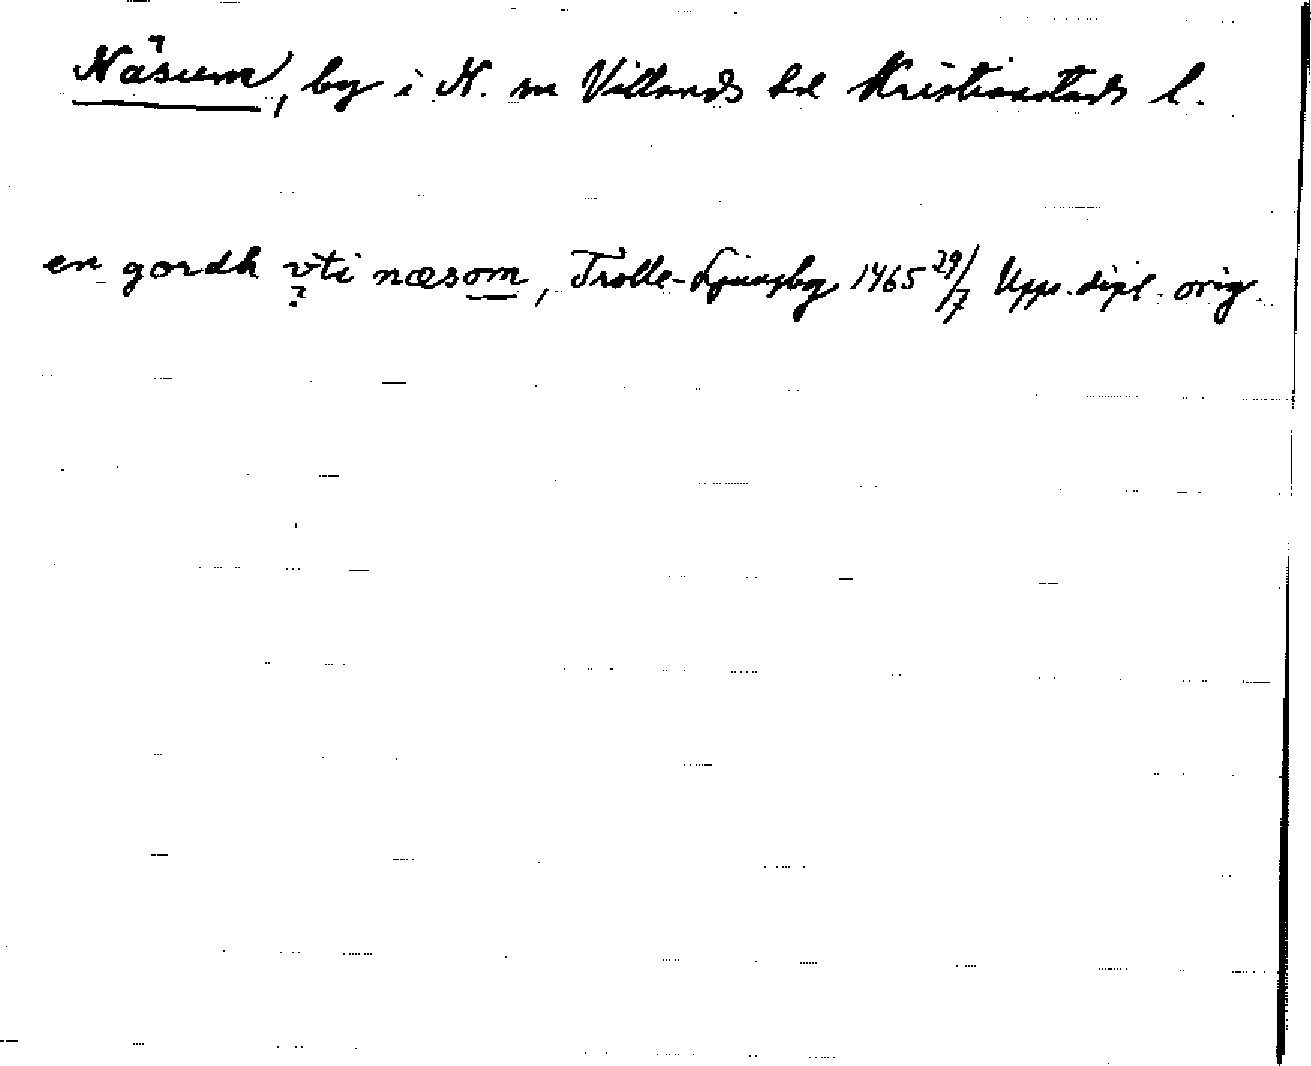 Näsum, by i N. sn Villands hd Kristianstads l.
en gordh vti næsom, Trolle-Ljungby 1465 29/7 Upps. dipl. orig.
?